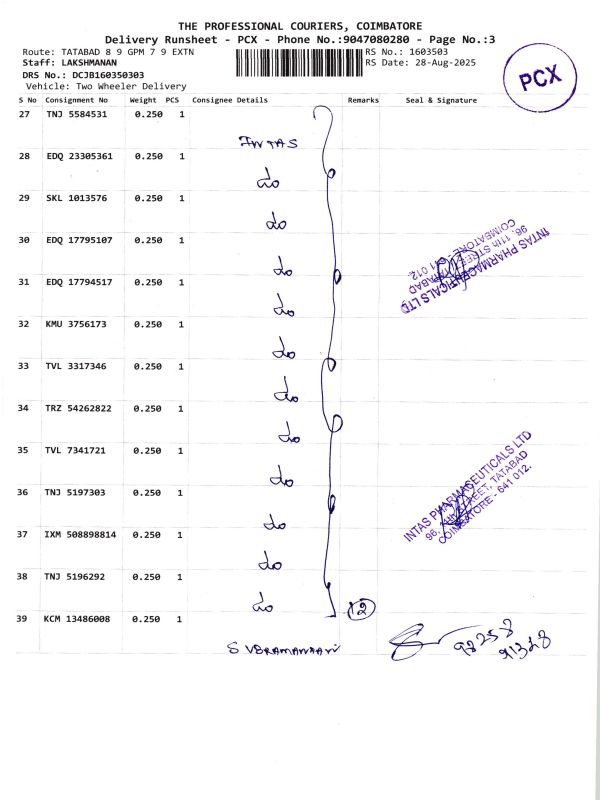 THE PROFESSIONAL COURIERS, COIMBATORE
Delivery Runsheet - PCX - Phone No.:9047080280 - Page No.:3
Route: TATABAD 8 9 GPM 7 9 EXTN
RS No.: 1603503
Staff: LAKSHMANAN
RS Date: 28-Aug-2025
DRS No.: DCJB160350303
Vehicle: Two Wheeler Delivery
PCX
S No Consignment No Weight PCS Consignee Details Remarks Seal & Signature
27 TNJ 5584531 0.250 1
INTAS
28 EDQ 23305361 0.250 1
do
29 SKL 1013576 0.250 1
do
30 EDQ 17795107 0.250 1
do
31 EDQ 17794517 0.250 1
do
32 KMU 3756173 0.250 1
do
33 TVL 3317346 0.250 1
do
34 TRZ 54262822 0.250 1
do
35 TVL 7341721 0.250 1
do
36 TNJ 5197303 0.250 1
do
37 IXM 508898814 0.250 1
do
38 TNJ 5196292 0.250 1
do
12
39 KCM 13486008 0.250 1
SUBRAMANIAN
98258
91328
INTAS PHARMACEUTICALS LTD
96, 11th STREET, TATABAD
COIMBATORE - 641 012.
INTAS PHARMACEUTICALS LTD
96, 11th STREET, TATABAD
COIMBATORE - 641 012.